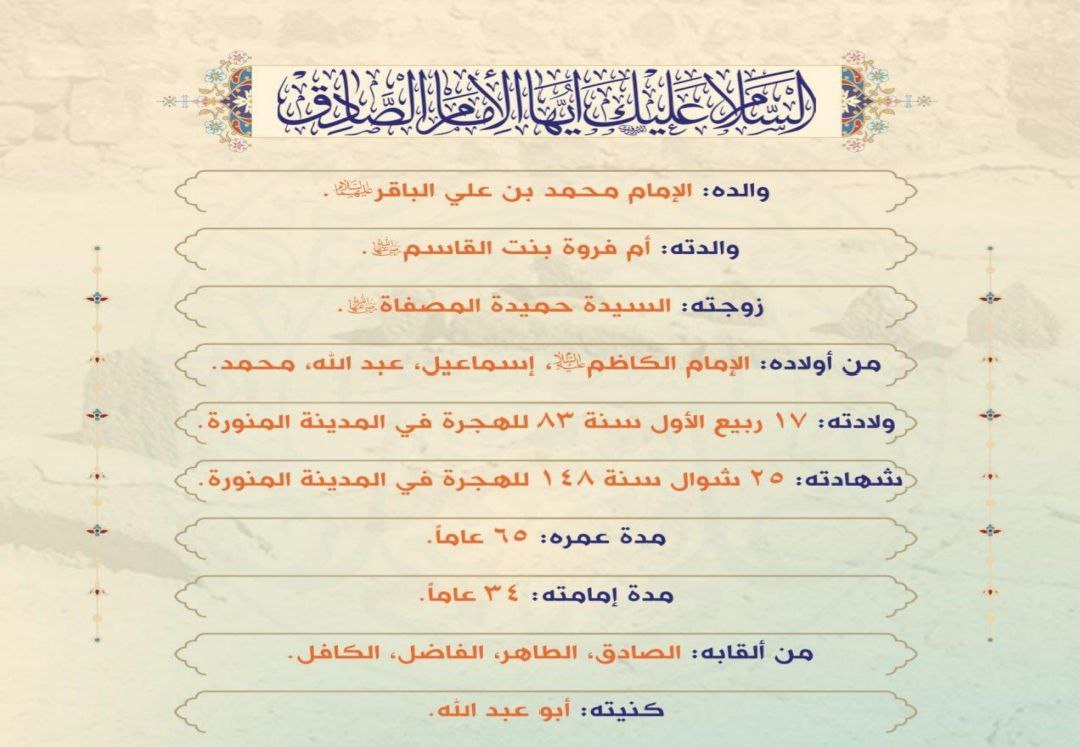 السلام عليك أيها الإمام الصادق
والده: الإمام محمد بن علي الباقر عليهما السلام.
والدته: أم فروة بنت القاسم.
زوجته: السيدة حميدة المصفاة.
من أولاده: الإمام الكاظم عليه السلام، إسماعيل، عبد الله، محمد.
ولادته: ١٧ ربيع الأول سنة ٨٣ للهجرة في المدينة المنورة.
شهادته: ٢٥ شوال سنة ١٤٨ للهجرة في المدينة المنورة.
مدة عمره: ٦٥ عاماً.
مدة إمامته: ٣٤ عاماً.
من ألقابه: الصادق، الطاهر، الفاضل، الكافل.
كنيته: أبو عبد الله.